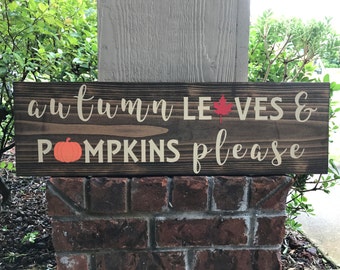 autumn LEAVES &
PUMPKINS please